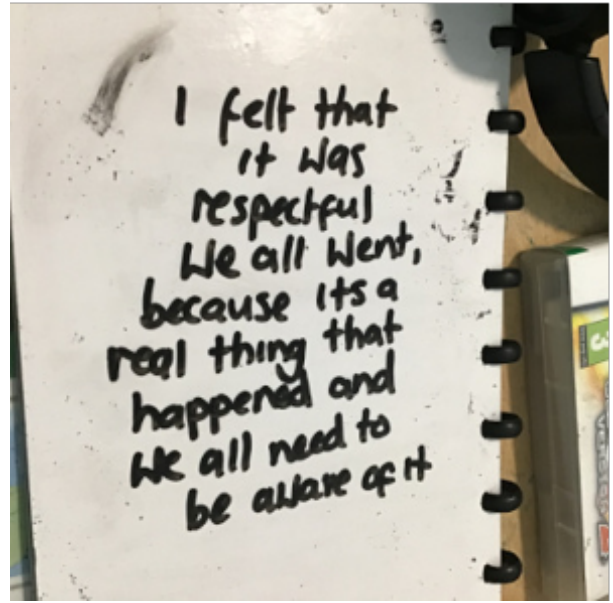 I felt that
it was
respectful
We all went,
because its a
real thing that
happened and
we all need to
be aware of it
3